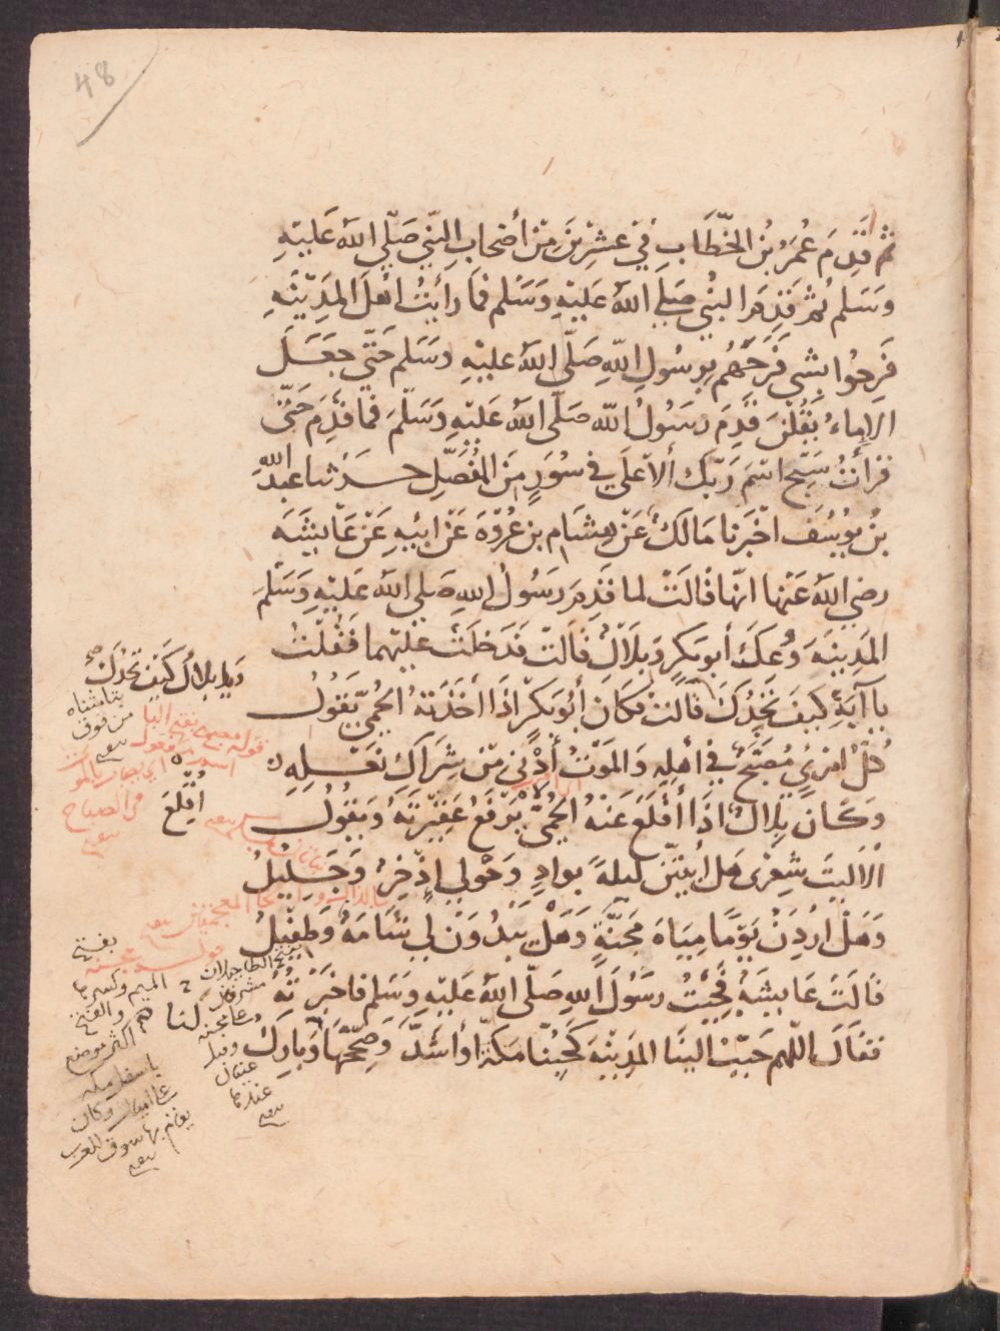 48
ثُمَّ قَدِمَ عُمَرُ بْنُ الخَطَّابِ فِي عِشْرِينَ مِنْ أَصْحَابِ النَّبِي صَلَّي اللهُ عَلَيْهِ
وَسَلم ثُمَّ قَدِمَ النبْي صَلي اللهُ عَلَيْهِ وَسَلم فمَا رأيتُ أهْلَ المَدِينَةِ
فَرِحُوا بِشَي فَرَحَهُمْ بِرسُولِ اللهِ صَلَّى اللهُ عليْهِ وسَلم حَتّي جَعَلَ
الإِماءُ يَقُلْنَ قَدِمَ رسَوُلُ الله صَلَّى اللهُ عَلَيْهِ وَسَلَّمَ فمَا قَدِمَ حَتّى
قرَأتُ سَبِّحِ اسْمَ رَبّكَ ألاَعلَي في سُوَرٍ مِنَ المُفَصَّلِ حدثنا عَبْدُ اللهِ
بْنُ يوُسُفَ اخْبَرنا مَالكٌ عَنْ هِشَامِ بن عُرْوَةَ عَنْ ابيْهِ عَنْ عَائِشَةَ
رضي اللهُ عَنْها انّها قالَتْ لما قَدِمَ رَسُولُ اللهِ صَلي اللهُ عَلَيْهِ وَسَلَّمَ
المَدِينَةَ وُعِكَ أَبو بَكرٍ وَبلاَلٌ قَالَتْ فَدَخلتُ عَليْهما فَقُلْتُ
يا أبَةِ كيفَ تَجِدُكَ قَالَتْ فكَان أبُو بَكْرٍ اذَا أخَذَتهُ الحُمّي يَقوُلُ
وَيا بلالُ كَيْفَ تَجِدُكَ صح
كُلُّ امْرِيٍ مُصَبَّحٌ في أهْلِهِ وَالمَوْتُ أَدْنَي مِنْ شِرَاكِ نَعْلِهِ
وَكَان بِلاَلٌ اذَا أَقْلَعَ عَنْهُ الحُمّي يَرْفَعُ عَقِيْرَتَهُ وَيَقُولُ
أُقْلِعَ
ألاَ لَيتَ شِعْرِى هَل أبيْتَنَّ ليلةً بوادٍ وَحَوْلِي إذْخِرٌ وَجَلِيْلُ
وَهَلْ أرِدَنْ يَوْمًا مِيَاهَ مَجَنَّةٍ وَهَلْ يَبْدُوَنْ لِي شَامَةٌ وَطَفِيْلُ
قَالَتْ عَايشَةُ فَجِيْتُ رسَوُلَ اللهِ صَلّى اللهُ عَليْهِ وسَلم فاخْبَرْتُهُ
فقَالَ اللّهم حَبّبْ الينَا المَدِينَةَ كَحُبِّنا مَكّةَ أو أشَدَّ وَصَحِّحْهَا وَبارِكْ لنَا
بالمثناه
من فوق
قوله مصبح بفتح البا
من الصباح
بفتح
الميم وكسرها
والفتح
اكثر موضع
باسفل مكه
على اميال وكان
يقام بها سوق للعرب
جبلان
مشرفان
على مجنه
وقيل
عينان
عندها